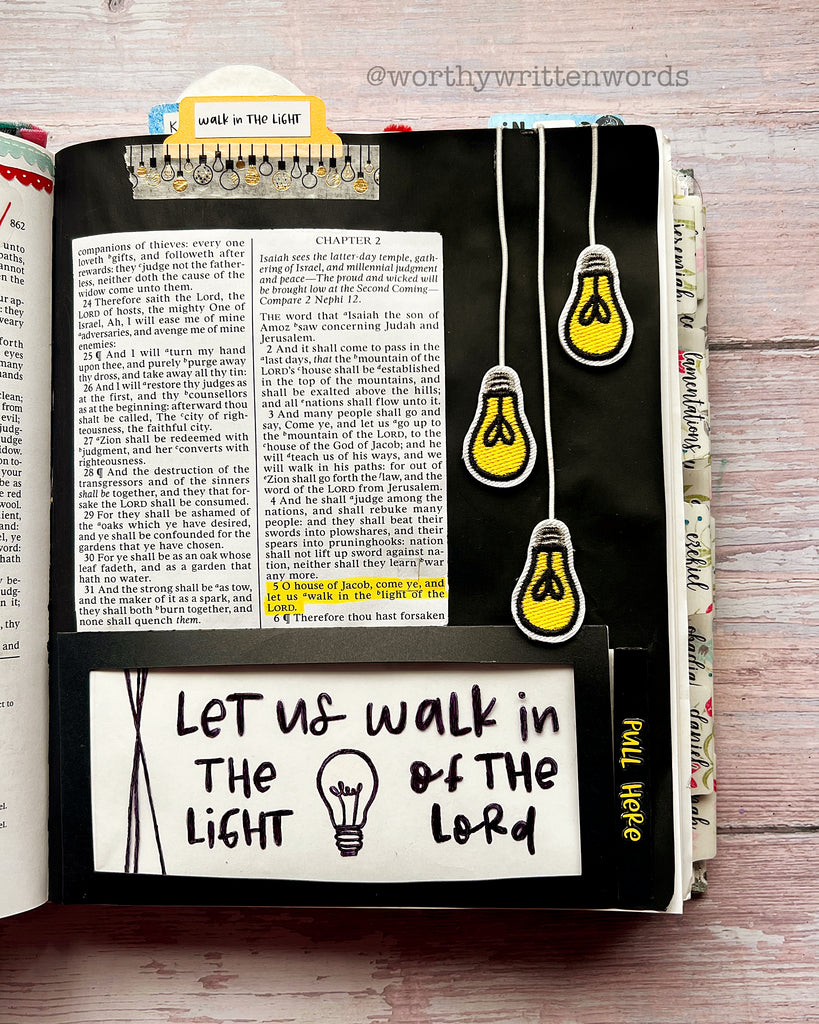 @worthywrittenwords
walk in THE LIGHT
862
companions of thieves: every one
loveth ᵇgifts, and followeth after
rewards: they ᶜjudge not the father-
less, neither doth the cause of the
widow come unto them.
24 Therefore saith the Lord, the
LORD of hosts, the mighty One of
Israel, Ah, I will ease me of mine
ᵃadversaries, and avenge me of mine
enemies:
25 ¶ And I will ᵃturn my hand
upon thee, and purely ᵇpurge away
thy dross, and take away all thy tin:
26 And I will ᵃrestore thy judges as
at the first, and thy ᵇcounsellors
as at the beginning: afterward thou
shalt be called, The ᶜcity of righ-
teousness, the faithful city.
27 ᵃZion shall be redeemed with
ᵇjudgment, and her ᶜconverts with
righteousness.
28 ¶ And the destruction of the
transgressors and of the sinners
shall be together, and they that for-
sake the LORD shall be consumed.
29 For they shall be ashamed of
the ᵃoaks which ye have desired,
and ye shall be confounded for the
gardens that ye have chosen.
30 For ye shall be as an oak whose
leaf fadeth, and as a garden that
hath no water.
31 And the strong shall be ᵃas tow,
and the maker of it as a spark, and
they shall both ᵇburn together, and
none shall quench them.
CHAPTER 2
Isaiah sees the latter-day temple, gath-
ering of Israel, and millennial judgment
and peace—The proud and wicked will
be brought low at the Second Coming—
Compare 2 Nephi 12.
THE word that ᵃIsaiah the son of
Amoz ᵇsaw concerning Judah and
Jerusalem.
2 And it shall come to pass in the
ᵃlast days, that the ᵇmountain of the
LORD's ᶜhouse shall be ᵈestablished
in the top of the mountains, and
shall be exalted above the hills;
and all ᵉnations shall flow unto it.
3 And many people shall go and
say, Come ye, and let us ᵃgo up to
the ᵇmountain of the LORD, to the
ᶜhouse of the God of Jacob; and he
will ᵈteach us of his ways, and we
will walk in his paths: for out of
ᵉZion shall go forth the ᶠlaw, and the
word of the LORD from Jerusalem.
4 And he shall ᵃjudge among the
nations, and shall rebuke many
people: and they shall beat their
swords into plowshares, and their
spears into pruninghooks: nation
shall not lift up sword against na-
tion, neither shall they learn ᵇwar
any more.
5 O house of Jacob, come ye, and
let us ᵃwalk in the ᵇlight of the
LORD.
6 ¶ Therefore thou hast forsaken
LET us walk in
THE
LIGHT
of THE
LORD
PULL HERE
jeremiah
lamentations
ezekiel
obadia
daniel